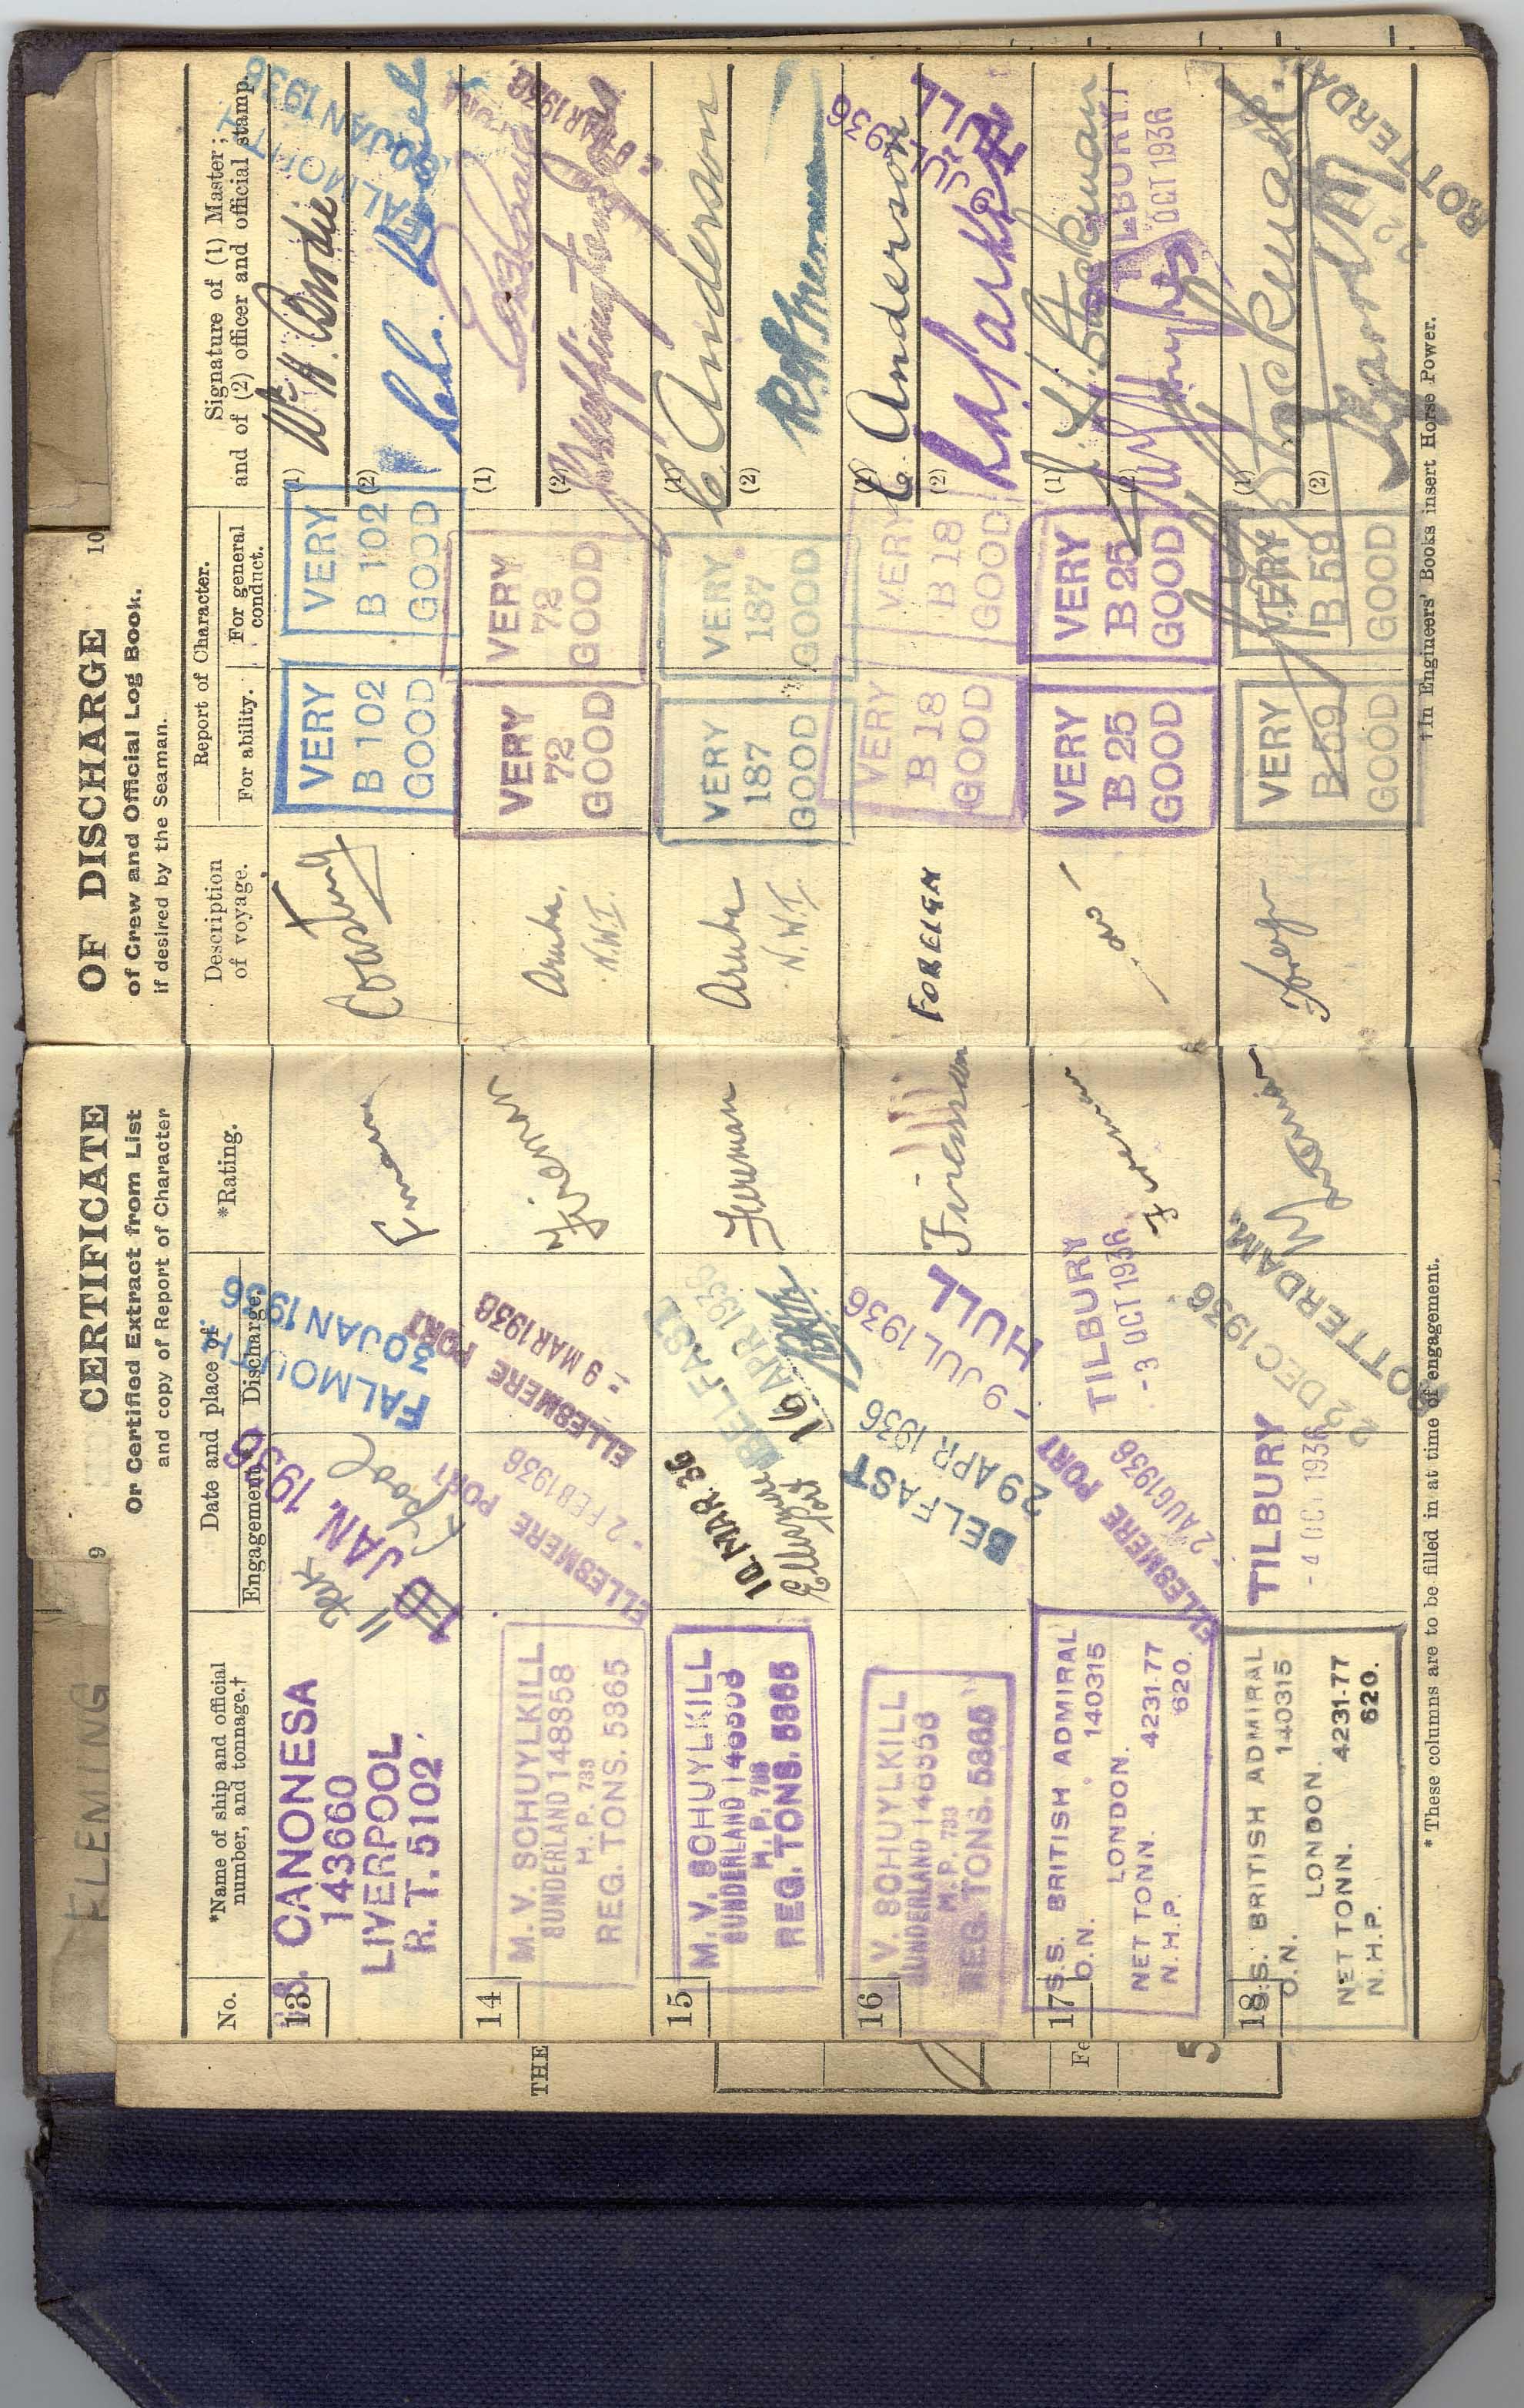 FLEMING
9
CERTIFICATE
Or Certified Extract from List
and copy of Report of Character
OF DISCHARGE
10
of Crew and Official Log Book.
if desired by the Seaman.
No.
*Name of ship and official
number, and tonnage.†
Date and place of
Engagement.
Discharge.
*Rating.
Description
of voyage.
Report of Character.
For ability.
For general
conduct.
Signature of (1) Master;
and of (2) officer and official stamp.
13
S.S. CANONESA
143660
LIVERPOOL
R. T. 5102
11 JAN. 1936
L'pool
FALMOUTH
30 JAN 1936
Fireman
Coasting
VERY
B 102
GOOD
VERY
B 102
GOOD
(1)
Wm H. Brodie
(2)
FALMOUTH
30 JAN 1936
14
M. V. SCHUYLKILL
SUNDERLAND 148858
H. P. 733
REG. TONS. 5365
ELLESMERE PORT
- 2 FEB 1936
ELLESMERE PORT
- 9 MAR 1936
Fireman
Aruba,
N.W.I.
VERY
72
GOOD
VERY
72
GOOD
(1)
(2)
MAR 1936
15
M. V. SCHUYLKILL
SUNDERLAND
H. P. 733
REG. TONS. 5365
10 MAR. 36
Ellesmere
Port
BELFAST
16 APR 1936
Fireman
Aruba
N.W.I.
VERY
187
GOOD
VERY
187
GOOD
(1)
C. Anderson
(2)
16
V. SCHUYLKILL
SUNDERLAND
H. P. 733
REG. TONS. 5365
BELFAST
29 APR 1936
- 9 JUL 1936
HULL
Fireman
FOREIGN
VERY
B 18
GOOD
VERY
B 18
GOOD
(1)
C. Anderson
(2)
JUL 1936
HULL
17
S.S. BRITISH ADMIRAL
O.N. 140315
LONDON.
NET TONN. 4231·77
N.H.P. 620.
ELLESMERE PORT
- 2 AUG 1936
TILBURY
- 3 OCT 1936
Fireman
- do -
VERY
B 25
GOOD
VERY
B 25
GOOD
(1)
Stockman
(2)
TILBURY
OCT 1936
18
S.S. BRITISH ADMIRAL
O.N. 140315
LONDON.
NET TONN. 4231·77
N.H.P. 620.
TILBURY
- 4 OCT 1936
22 DEC 1936
ROTTERDAM.
Fireman
Foreign
VERY
B 59
GOOD
VERY
B 59
GOOD
(1)
(2)
ROTTERDA
* These columns are to be filled in at time of engagement.
† In Engineers' Books insert Horse Power.
THE
Fe
5